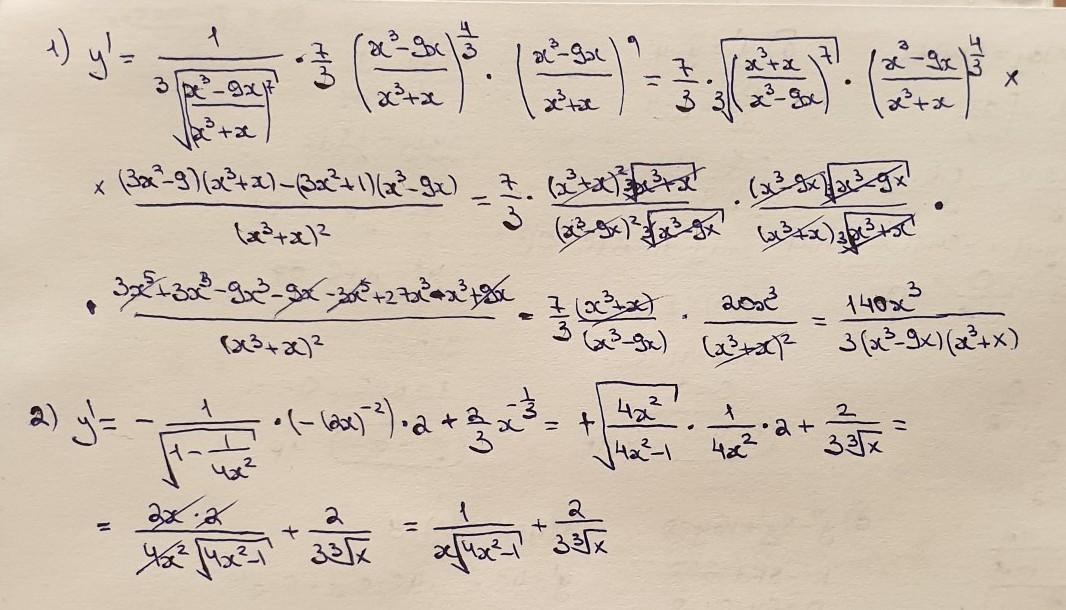 1) y' = 1/∛((x³-9x)/(x³+x))⁷ · 7/3 ((x³-9x)/(x³+x))^(4/3) · ((x³-9x)/(x³+x))' = 7/3 · ∛((x³+x)/(x³-9x))⁷ · ((x³-9x)/(x³+x))^(4/3) ×
× ((3x²-9)(x³+x)-(3x²+1)(x³-9x))/(x³+x)² = 7/3 · ((x³+x)² ∛(x³+x))/((x³-9x)² ∛(x³-9x)) · ((x³-9x) ∛(x³-9x))/((x³+x) ∛(x³+x)) ·
· (3x⁵+3x³-9x³-9x-3x⁵+27x³-x³+9x)/(x³+x)² = 7/3 (x³+x)/(x³-9x) · 20x³/(x³+x)² = 140x³/(3(x³-9x)(x³+x))
2) y' = - 1/√(1-1/(4x²)) · (-(2x)⁻²) · 2 + 2/3 x^(-1/3) = +√(4x²/(4x²-1)) · 1/(4x²) · 2 + 2/(3∛x) =
= (2x·2)/(4x²√(4x²-1)) + 2/(3∛x) = 1/(x√(4x²-1)) + 2/(3∛x)